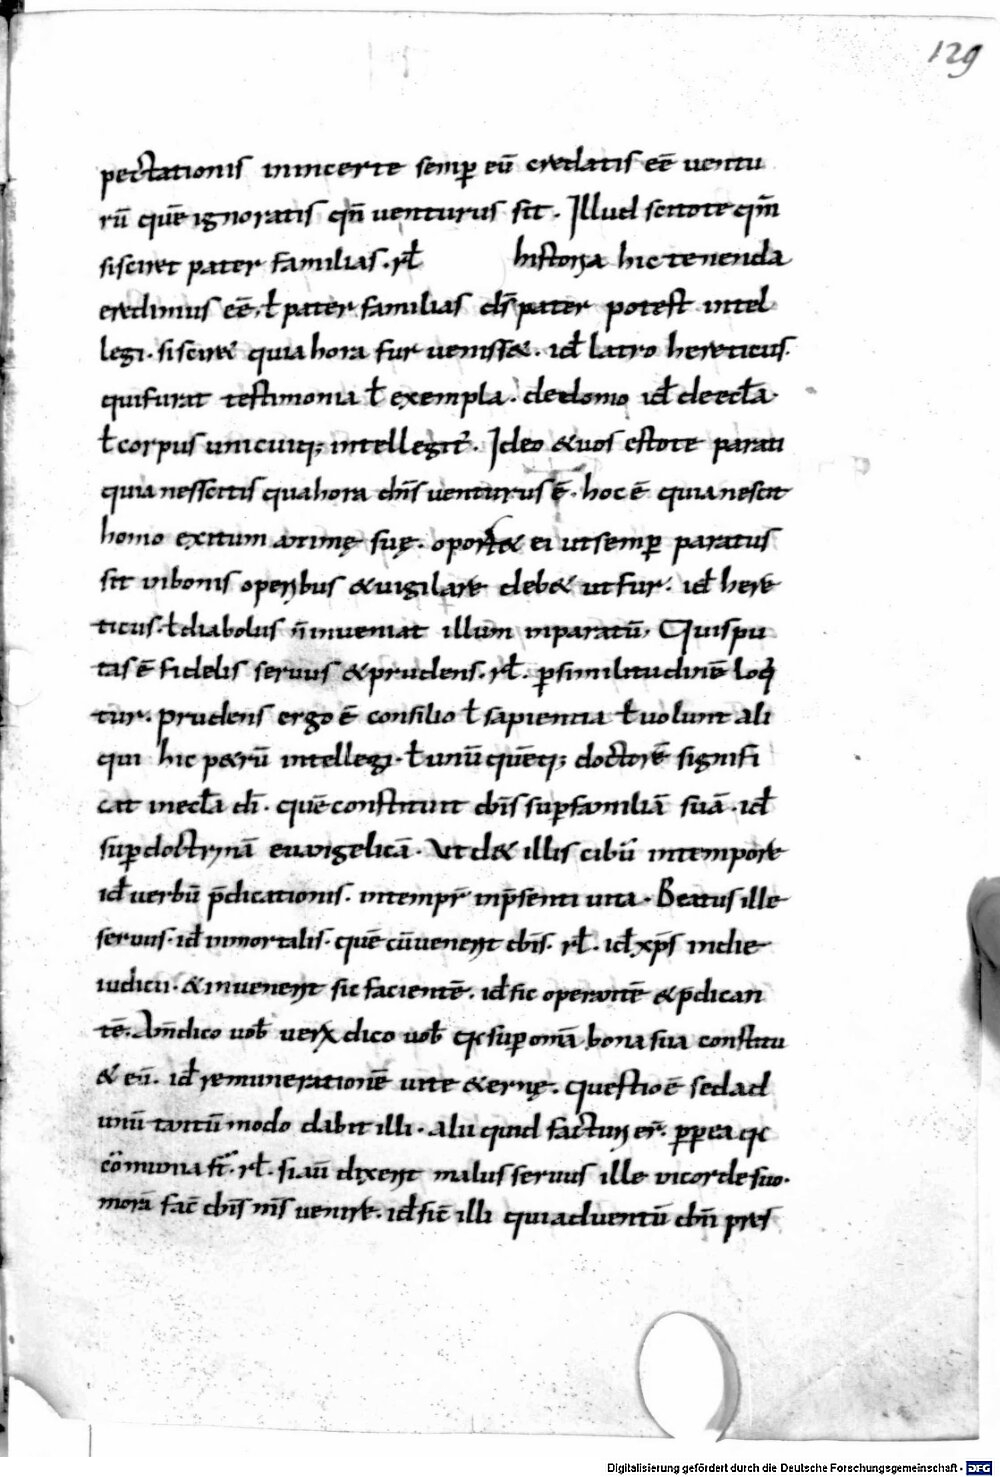 129
pectationis inincerte semp̄ eū credatis eē uentu
rū quē ignoratis qn̄ uenturus sit. Illud scitote qm̄
si sciret pater familias. rł historia hic tenenda
credimus eē. ł pater familias ds̄ pater potest intel
legi. si scir& quia hora fur ueniss&. idł latro hereticus.
qui furat testimonia ł exempla. de domo idł de eccła.
ł corpus unicuiq; intellegit̄. Ideo &uos estote parati
quia nesscitis qua hora dn̄s uenturus ē. hoc ē quia nescit
homo exitum animę suę. oport& ei ut semp̄ paratus
sit in bonis operibus &uigilare deb& ut fur. idł here
ticus. ł diabolus n̄ inueniat illum inparatū. Quis pu
tas ē fidelis seruus &prudens. rł. p̱ similitudinē loq̇
tur. prudens ergo ē consilio ł sapientia ł uolunt ali
qui hic p&rū intellegi. ł unū quēq; doctorē signifi
cat in eccła dī. quē constituit dn̄s sup̱ familiā suā. idł
sup̱ doctrinā euangelicā. Ut d& illis cibū in tempore
idł uerbū p̄dicationis. in tempr̄ in p̄senti uita. Beatus ille
seruus. idł inmortalis. quē cū uenerit dn̄s. rł. idł xp̄s in die
iudicii. &inuenerit sic facientē. idł sic operantē &p̄dican
tē. Am̄ dico uob̄ uere dico uob̄ qa sup̱ omā bona sua constitu
& eū. idł remunerationē uite &ernę. questio ē sed ad
unū tantū modo dabit illi. alii quid facturi er̄. p̱p̱ea qa
cōmunia st̄. rł. si aū dixerit malus seruus ille in corde suo.
morā fac̄ dn̄s m̄s uenire. idł sic̄ illi qui aduentū dn̄i pres
Digitalisierung gefördert durch die Deutsche Forschungsgemeinschaft - DFG